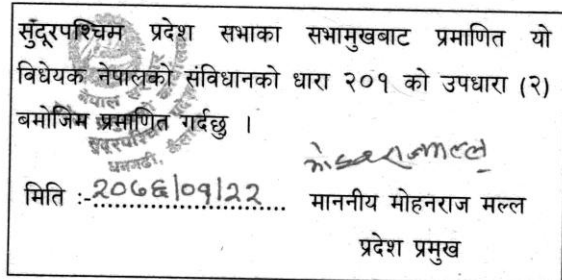 सुदूरपश्चिम प्रदेश सभाका सभामुखबाट प्रमाणित यो
विधेयक नेपालको संविधानको धारा २०१ को उपधारा (२)
बमोजिम प्रमाणित गर्दछु ।
मिति :-२०७६।०१।२२
माननीय मोहनराज मल्ल
प्रदेश प्रमुख
सुदूरपश्चिम
धनगढी,